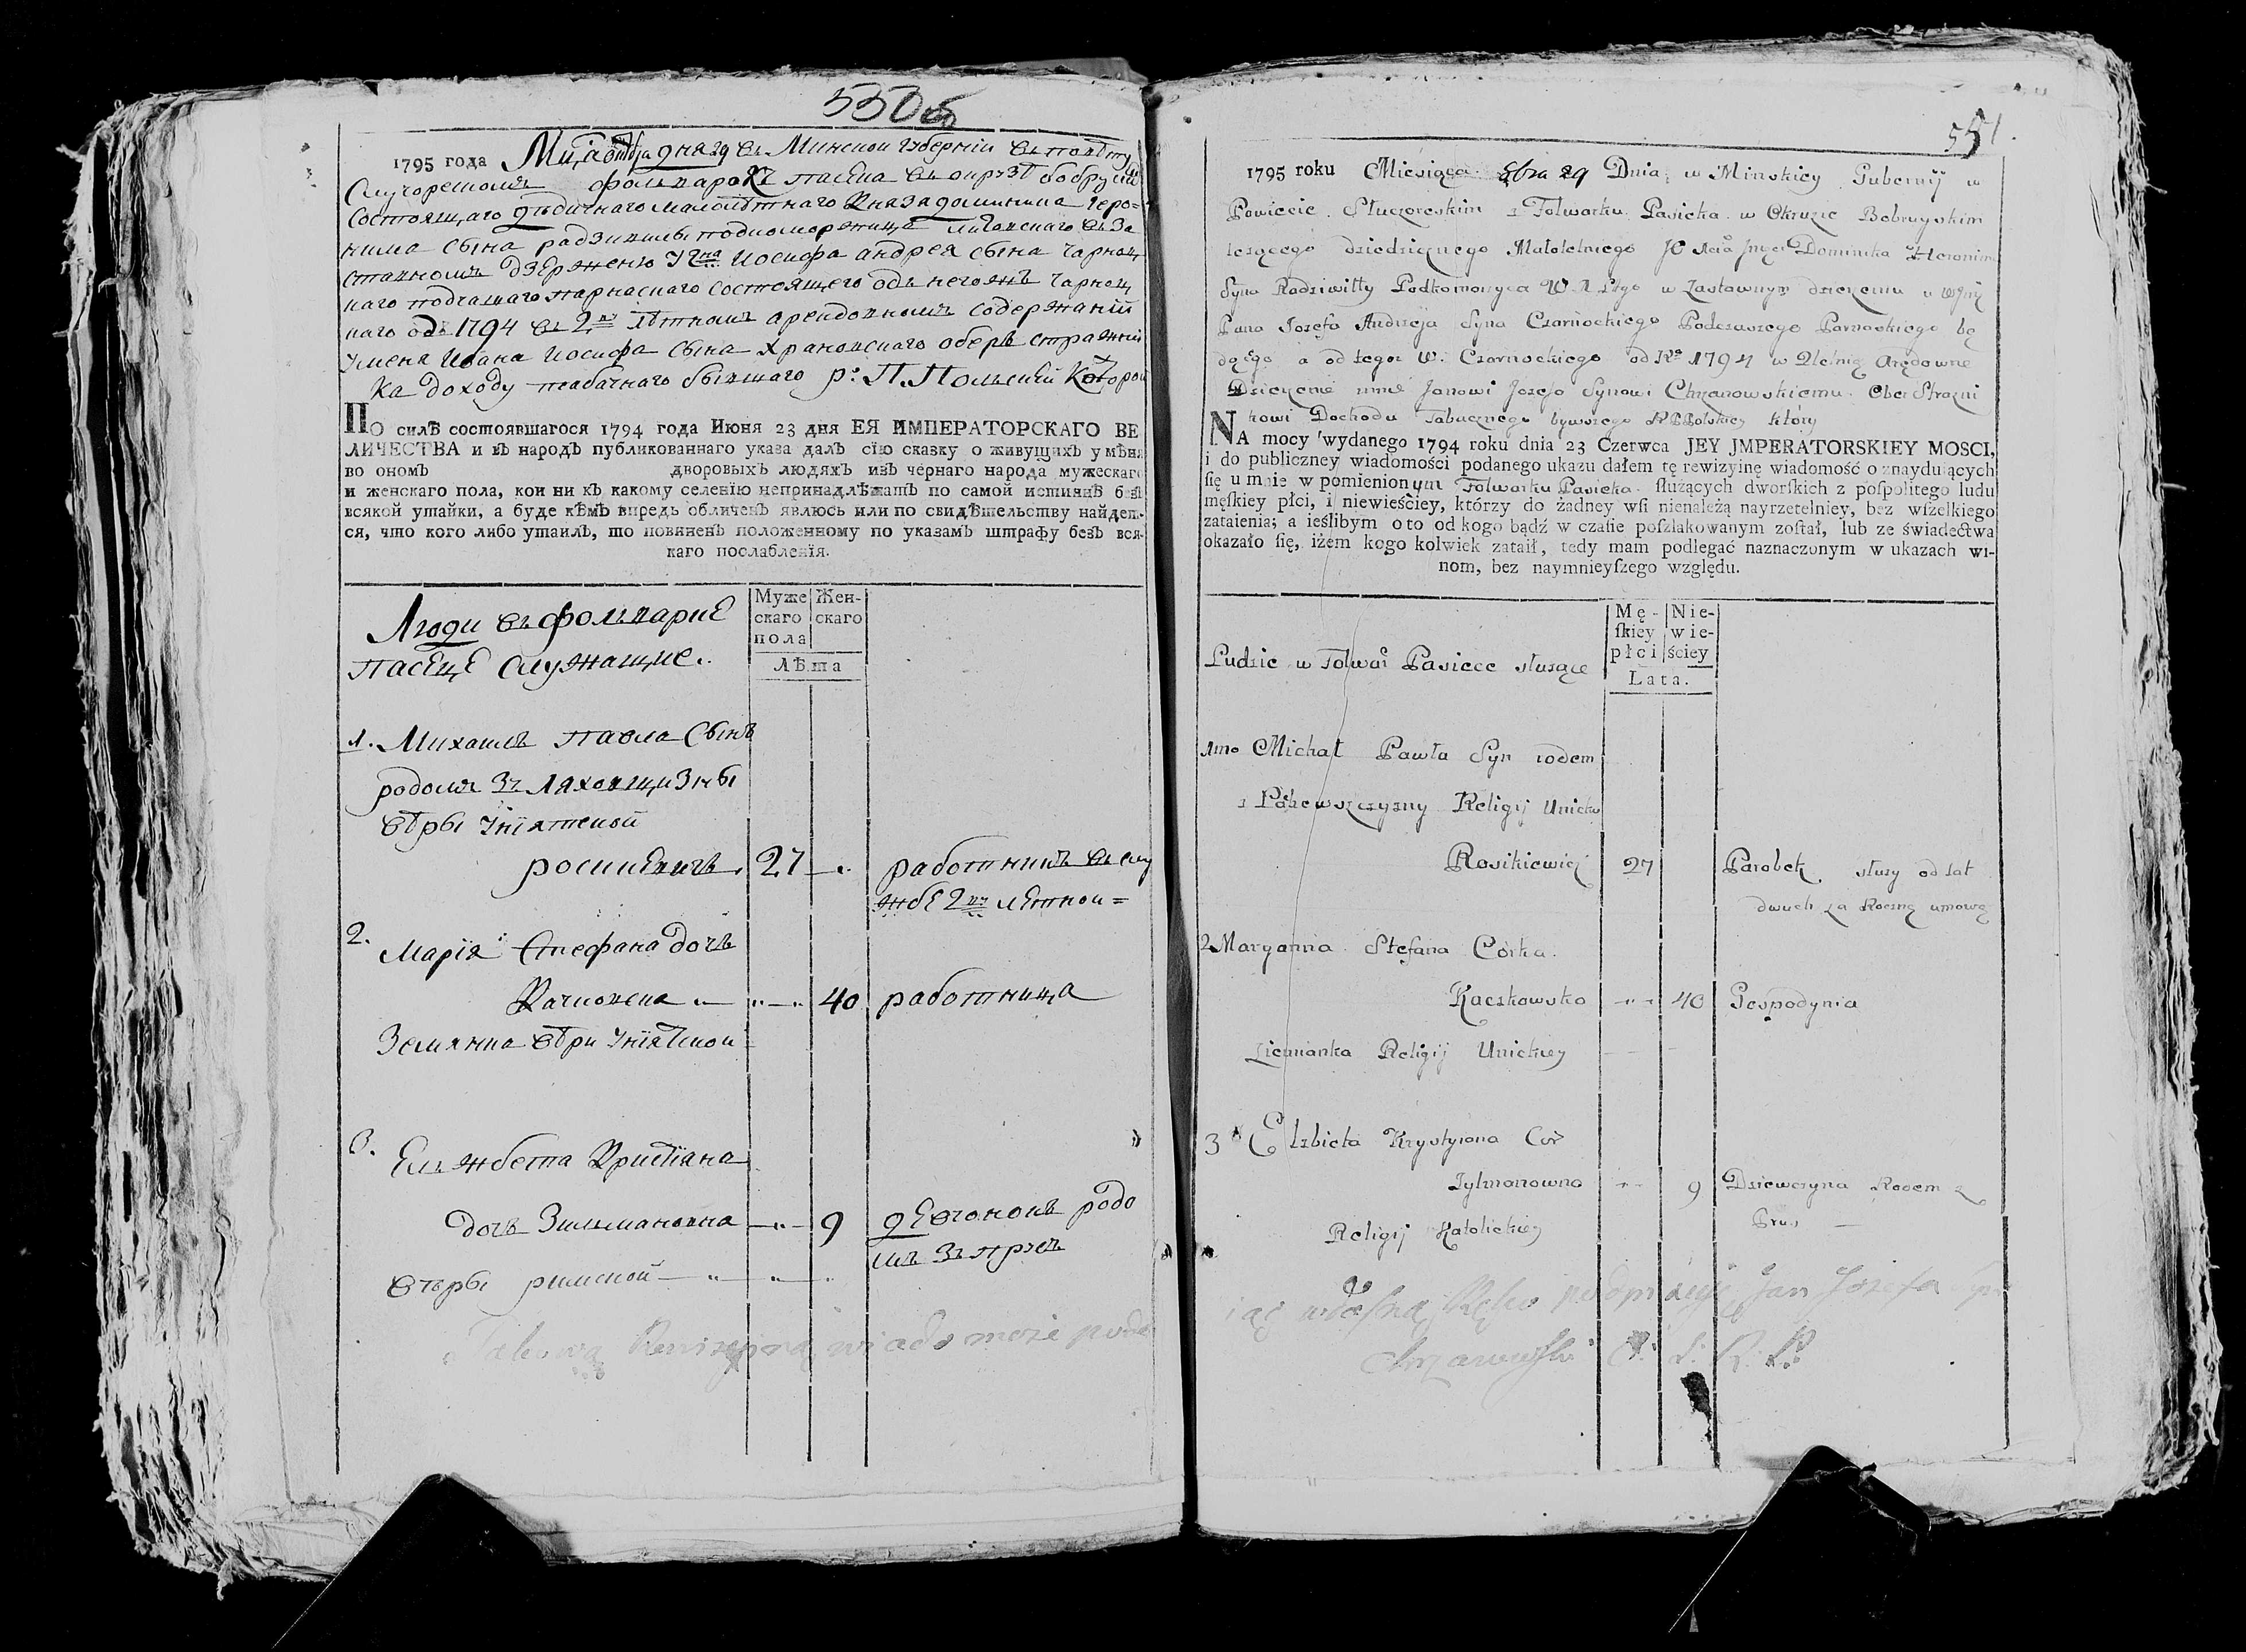 550об
1795 года Мца октбря дня 29 въ Минской губерніи въ повѣту
Случорецкомъ фольварокъ пасека въ окрузѣ бобруй
состоящаго дѣдичнаго малолѣтнаго Князя доминика геро=
нима сына радзивилы подкоморжица литовскаго въ за
ставномъ дзержению Іосифа андрея сына Чарноц
каго подчашаго парнаскаго состоящего одъ негожъ Чарноц
каго одъ 1794 въ 2хъ лѣтномъ арендовномъ содержаній
уменя Ивана Иосифа сына храновскаго оберъ стражни
ка доходу табачнаго бывшаго р: П. Польскей Которой
По силѣ состоявшагося 1794 года Июня 23 дня ЕЯ ИМПЕРАТОРСКАГО ВЕ
ЛИЧЕСТВА и въ народъ публикованнаго указа далъ сію сказку о живущихъ у мѣня
во ономъ дворовыхъ людяхъ изъ чернаго народа мужескаго
и женскаго пола, кои ни къ какому селенію непринадлѣжатъ по самой истиннѣ безъ
всякой утайки, а буде кѣмъ впредь обличенъ явлюсь или по свидѣтельству найдет-
ся, что кого либо утаилъ, то повиненъ положенному по указамъ штрафу безъ вся-
каго послабленія.
Муже Жен-
скаго скаго
пола
Лѣта
Люди въ фольварке
пасеце служащие.
1. Михаилъ павла Сынъ
родомъ зъ Ляховщизны
вѣры Уніятской
росикевичъ. 27 работникъ въ слу
жбе 2хъ летной =
2. Марія Стефана дочь
Качковска 40 работница
Землянка вѣри Уніятской
3. Ельжбета Христіана
дочь Зильмановна 9 девчонокъ родо
мъ зъ прусъ
вѣры римской
Takową Rewizyiną wiadomość poda
551
1795 roku Miesiąca 8bra 29 Dnia w Minskiey Gubernij w
Powiecie Słuczoreckim z Folwarku Pasieka w Okruzie Bobruyskim
leżącego dziedzicznego Małoletniego JO Dominika Hieronim
Syna Radziwiłły Podkomorzyca W. X. Lłgo w Zastawnym dzierzeniu u
Pana Jozefa Andrzeja Syna Czarnockiego Podczaszego Parnaskiego bę
dącego a od tegoż W. Czarnockiego od Rº 1794 w 2letnią Arędowne
Dzierzenie mnie Janowi Jozefo Synowi Chrzanowskiemu Ober Strażni
kowi Dochodu Tabacznego bywszego RPPolskiey który
NA mocy wydanego 1794 roku dnia 23 Czerwca JEY JMPERATORSKIEY MOSCI,
i do publiczney wiadomości podanego ukazu dałem tę rewizyinę wiadomość o znayduiących
się u mnie w pomienionym Folwarku Pasieka służących dworskich z pospolitego ludu
męskiey płci, i niewieściey, którzy do żadney wsi nienależą nayrzetelniey, bez wszelkiego
zataienia; a ieślibym o to od kogo bądź w czasie poszlakowanym został, lub ze świadectwa
okazało się, iżem kogo kolwiek zataił, tedy mam podlegać naznaczonym w ukazach wi-
nom, bez naymnieyszego względu.
Mę- Nie-
skiey wie-
płci ściey
Lata.
Ludzie w Folwar Pasiece służące
1mo Michał Pawła Syn rodem
z Religij Unicko
Rosikiewicz 27 Parobek służy od lat
dwuch za Roczną umowę
2 Maryanna Stefana Corka
Kaczkowsko 40 Gospodynia
Ziemianka Religij Unickiey
3 Elzbieta Krystyiana Cor
Zylmanowna 9 Dziewczyna Rodem z
Prus
Religij Katolickiey
iąc własną Ręko podpisuię Jan Jozefa syn
Chrzanowski O: S: R: P: